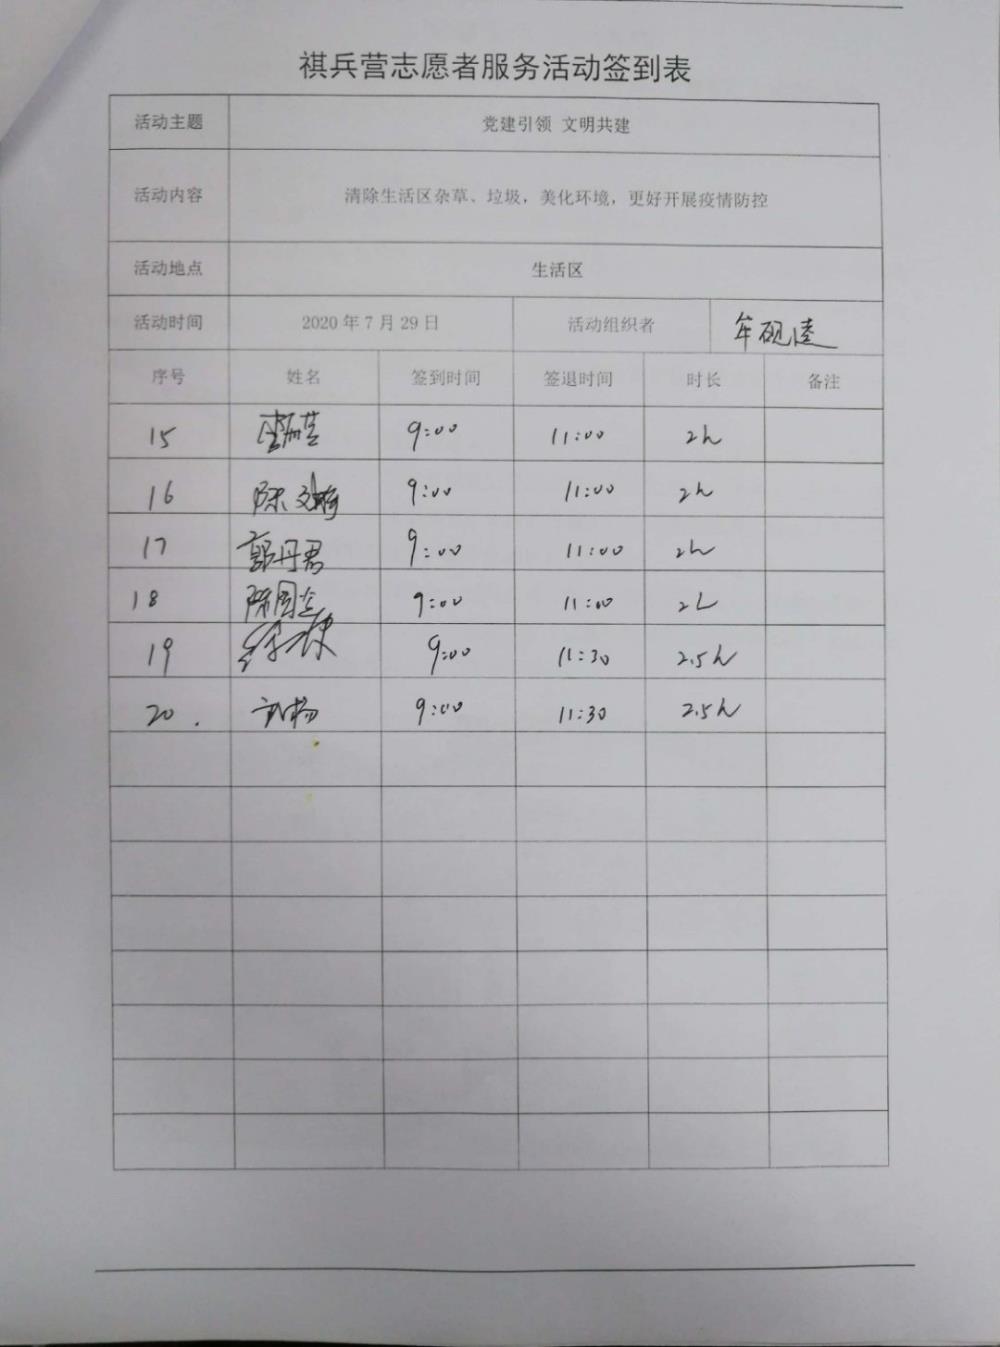 祺兵营志愿者服务活动签到表
活动主题 党建引领 文明共建
活动内容 清除生活区杂草、垃圾，美化环境，更好开展疫情防控
活动地点 生活区
活动时间 2020年7月29日 活动组织者
序号 姓名 签到时间 签退时间 时长 备注
15 9:00 11:00 2h
16 陈 9:00 11:00 2h
17 郭丹君 9:00 11:00 2h
18 9:00 11:00 2h
19 9:00 11:30 2.5h
20. 9:00 11:30 2.5h